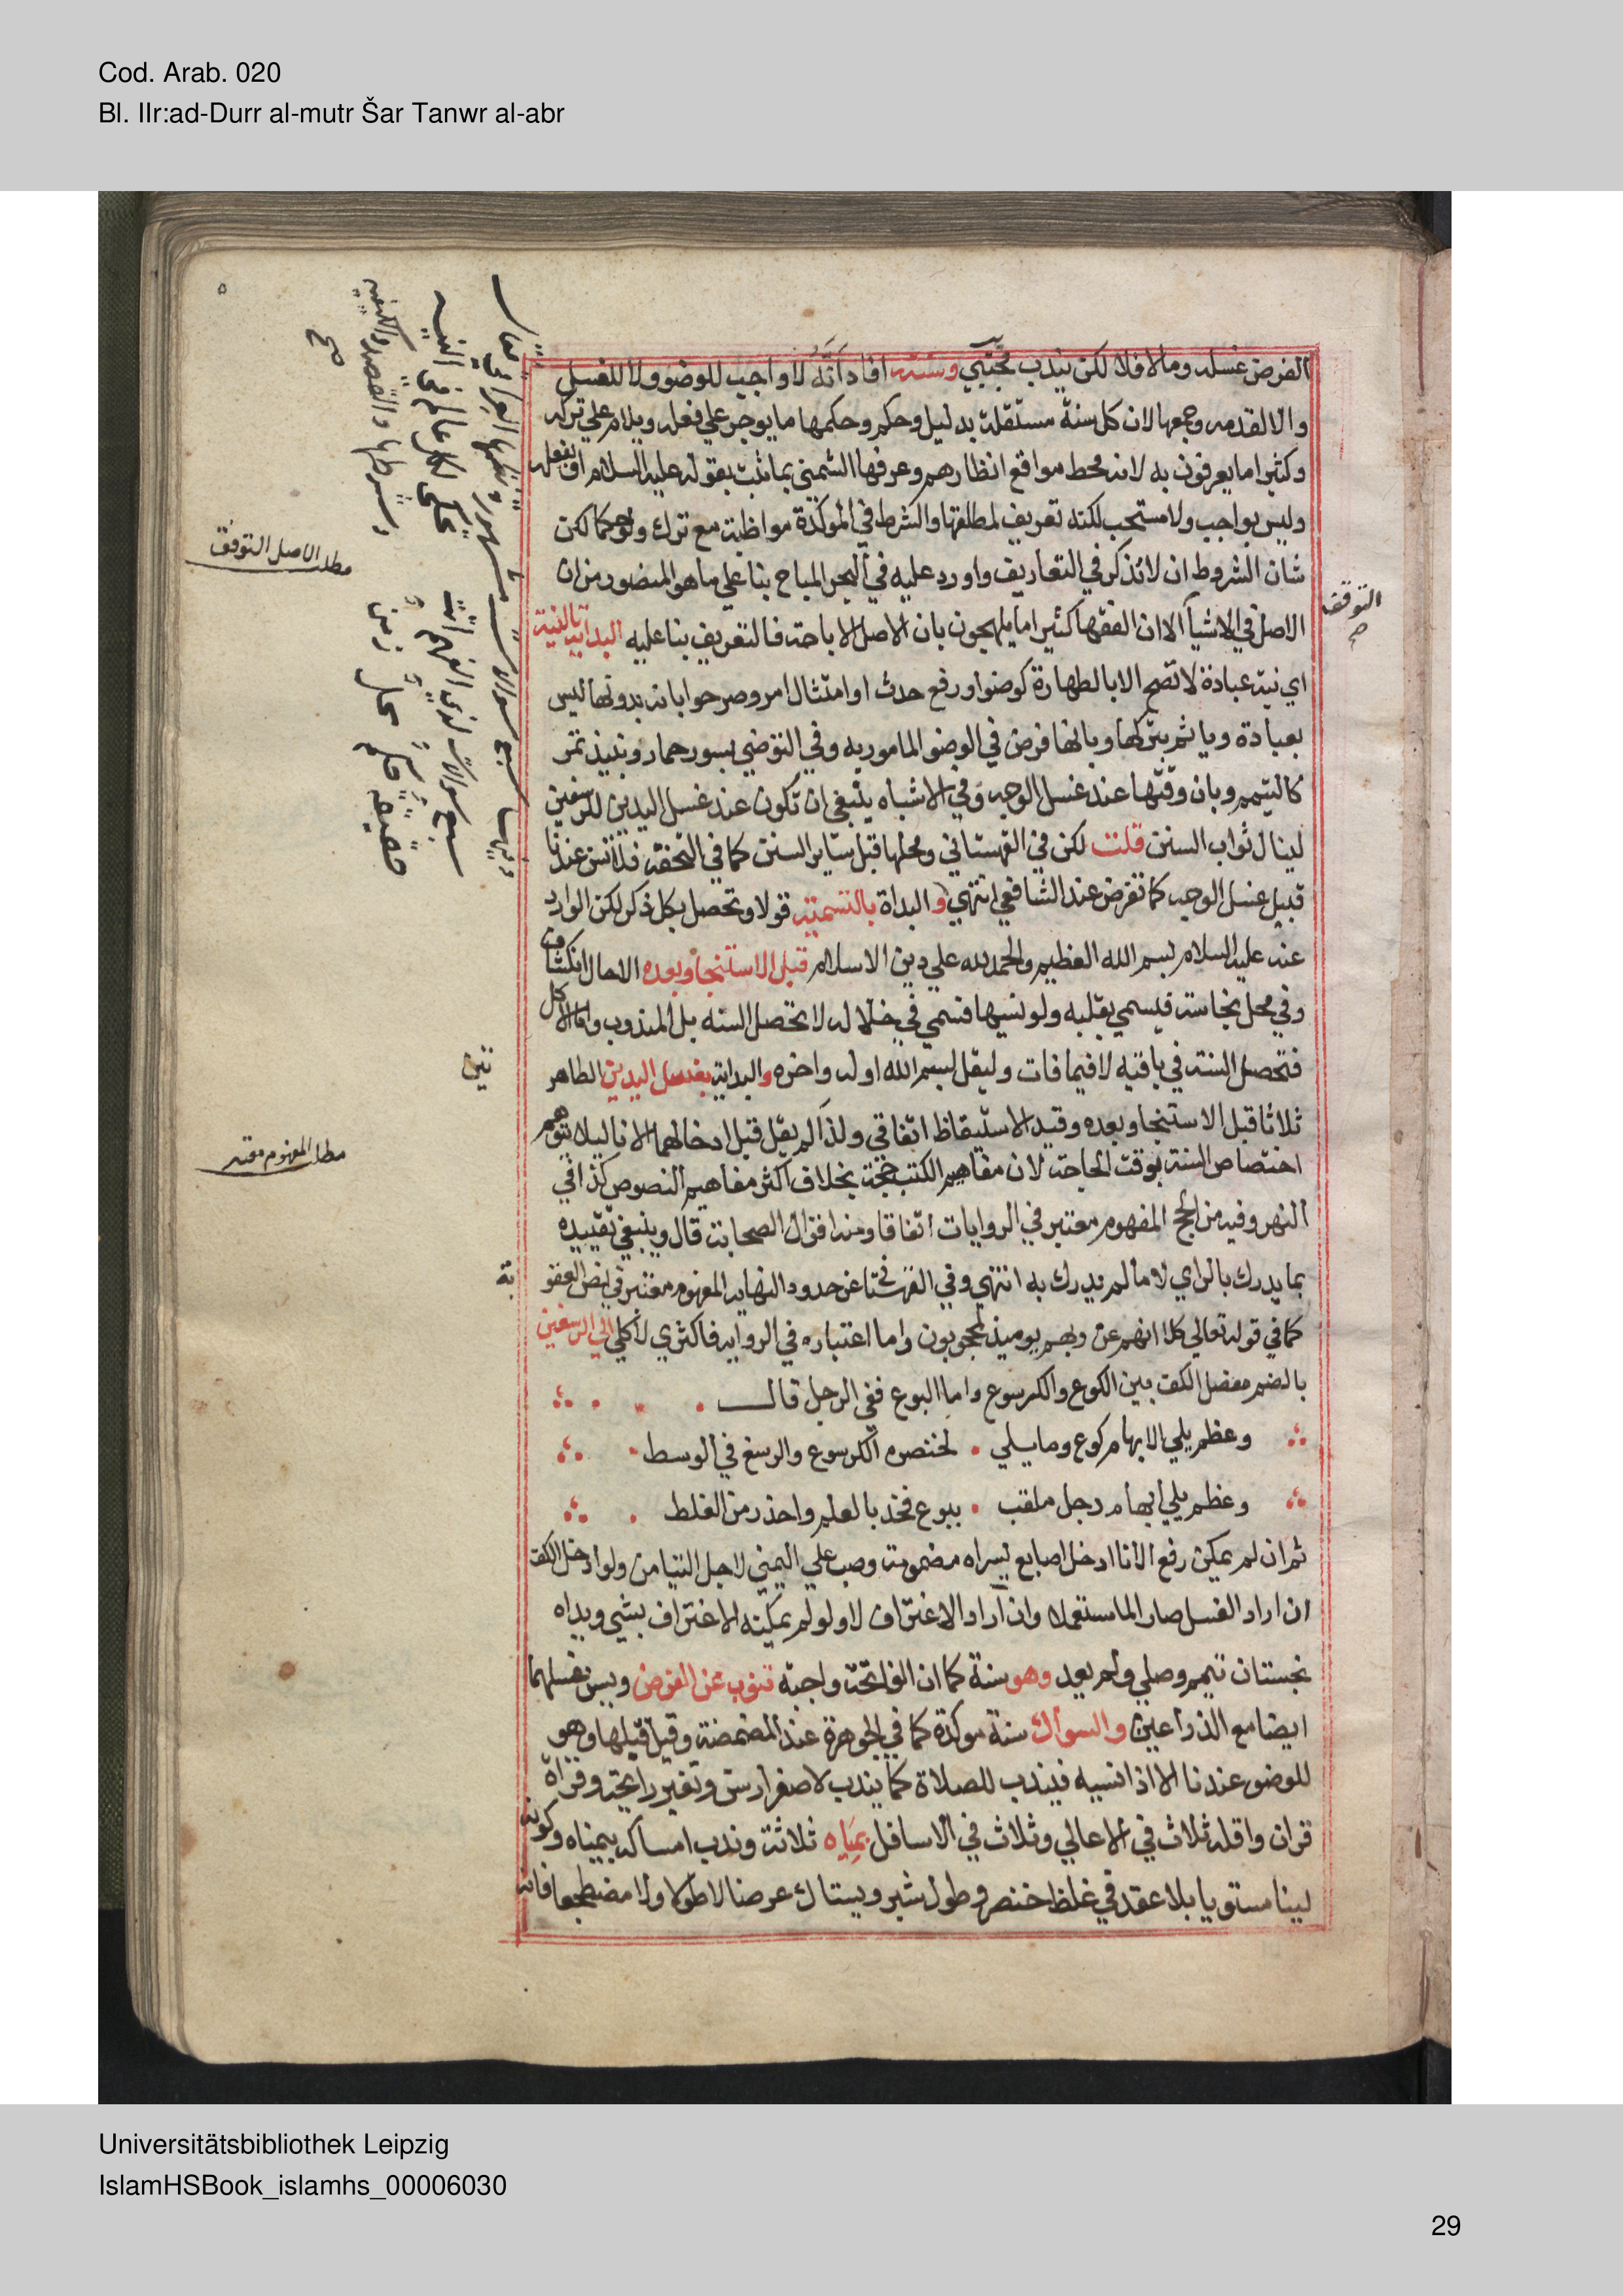 Cod. Arab. 020
Bl. IIr:ad-Durr al-mutr Šar Tanwr al-abr
الفرض غسله وما لا فلا لكن يندب مجتبي وسننه افاد انه لا واجب للوضو ولا للغسل
والا لقدمه وجمعها لان كل سنة مستقلة بدليل وحكم وحكمها ما يوجر علي فعله ويلام علي تركه
وكثيرا ما يعرفون به لانه محط مواقع انظارهم وعرفها الشمني بما ثبت بقوله عليه السلام او بفعله
وليس بواجب ولا مستحب لكنه تعريف لمطلقها والشرط في الموكدة مواظبة مع ترك ولو حكما لكن
شان الشروط ان لا تذكر في التعاريف واورد عليه في البحر المباح بنا علي ما هو المنصور من ان
الاصل في الاشيا الا ان الفقها كثيرا ما يلهجون بان الاصل الاباحة فالتعريف بنا عليه البداية بالنية
التوقف صح
اي نية عبادة لا تصح الا بالطهارة كوضو او رفع حدث او امتثال امر وصرحوا بانه بدونها ليس
بعبادة وياثم بتركها وبانها فرض في الوضو المامور به وفي التوضي بسور حمار ونبيذ تمر
كالتيمم وبان وقتها عند غسل الوجه وفي الاشباه ينبغي ان تكون عند غسل اليدين للرسغين
لينال ثواب السنن قلت لكن في القهستاني ومحلها قبل ساير السنن كما في التحفة فلا تسن عندنا
قبيل غسل الوجه كما تفرض عند الشافعي انتهي والبداة بالتسمية قولا وتحصل بكل ذكر لكن الوارد
عنه عليه السلام بسم الله العظيم والحمد لله علي دين الاسلام قبل الاستنجا وبعده الا حال انكشاف
وفي محل نجاسة فيسمي بقلبه ولو نسيها فسمي في خلاله لا تحصل السنة بل المندوب واما الاكل
فتحصل السنة في باقيه لا فيما فات وليقل بسم الله اوله واخره والبداية بغسل اليدين الطاهر
تين
ثلاثا قبل الاستنجا وبعده وقيد الاستيقاظ اتفاقي ولذا لم يقل قبل ادخالهما الانا ليلا يتوهم
اختصاص السنة بوقت الحاجة لان مفاهيم الكتب حجة بخلاف اكثر مفاهيم النصوص كذا في
النهر وفيه من الحج المفهوم معتبر في الروايات اتفاقا ومنه اقوال الصحابة قال وينبغي تقييده
بما يدرك بالراي لا ما لم يدرك به انتهي وفي القهستاني عن حدود النهاية المفهوم معتبر في نص العقو
بة
كما في قوله تعالي كلا انهم عن ربهم يوميذ لمحجوبون واما اعتباره في الرواية فاكثري لا كلي الي الرسغين
بالضم مفصل الكف بين الكوع والكرسوع واما البوع ففي الرجل قال
وعظم يلي الابهام كوع وما يلي . لخنصره الكرسوع والرسغ في الوسط
وعظم يلي ابهام رجل ملقب . ببوع فخذ بالعلم واحذر من الغلط
ثم ان لم يمكن رفع الانا ادخل اصابع يسراه مضمومة وصب علي اليمني لاجل التيامن ولو ادخل الكف
ان اراد الغسل صار الما مستعملا وان اراد الاغتراف لا ولو لم يمكنه الاغتراف بشي ويداه
نجستان تيمم وصلي ولم يعد وهو سنة كما ان الفاتحة واجبة تنوب عن الفرض ويسن غسلهما
ايضا مع الذراعين والسواك سنة موكدة كما في الجوهرة عند المضمضة وقيل قبلها وهو
للوضو عندنا الا اذا نسيه فيندب للصلاة كما يندب لاصفرار سن وتغير رايحة وقراة
قران واقله ثلاث في الاعالي وثلاث في الاسافل بمياه ثلاثة وندب امساكه بيمناه وكونه
لينا مستويا بلا عقد في غلظ خنصر وطول شبر ويستاك عرضا لا طولا ولا مضطجعا فانه
مطلب الاصل التوقف
مطلب المفهوم معتبر
Universitätsbibliothek Leipzig
IslamHSBook_islamhs_00006030
29